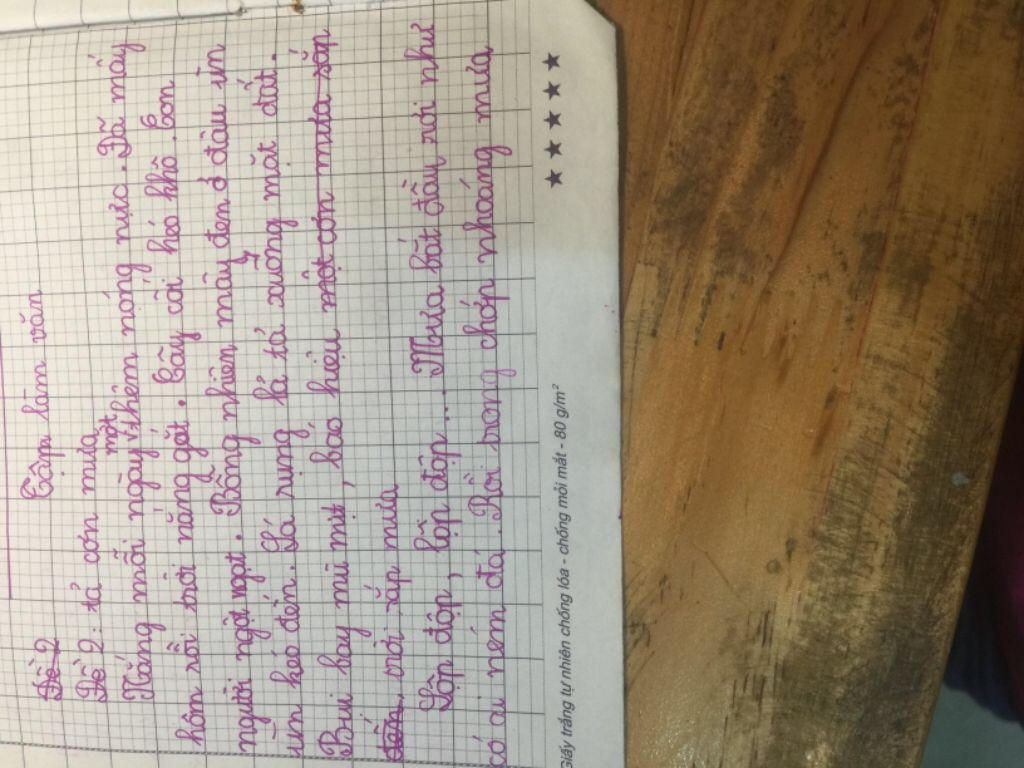 Tập làm văn
Đề 2
Đề 2: tả cơn mưa
Nắng mỗi ngày một thêm nóng nực. Đã mấy
hôm rồi trời nắng gắt. Cây cối héo khô. Con
người ngột ngạt. Bỗng nhiên mây đen ở đâu ùn
ùn kéo đến. Lá rụng lả tả xuống mặt đất.
Bụi bay mù mịt, báo hiệu một cơn mưa sắp
đến. trời sắp mưa
Lộp độp, lộp độp... Mưa bắt đầu rơi như
có ai ném đá. Rồi trong chớp nhoáng mưa
Giấy trắng tự nhiên chống lóa - chống mỏi mắt - 80 g/m²